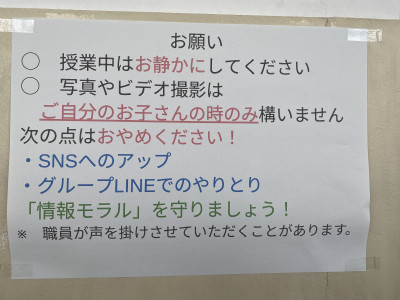 お願い
○ 授業中はお静かにしてください
○ 写真やビデオ撮影は
ご自分のお子さんの時のみ構いません
次の点はおやめください！
・SNSへのアップ
・グループLINEでのやりとり
「情報モラル」を守りましょう！
※ 職員が声を掛けさせていただくことがあります。